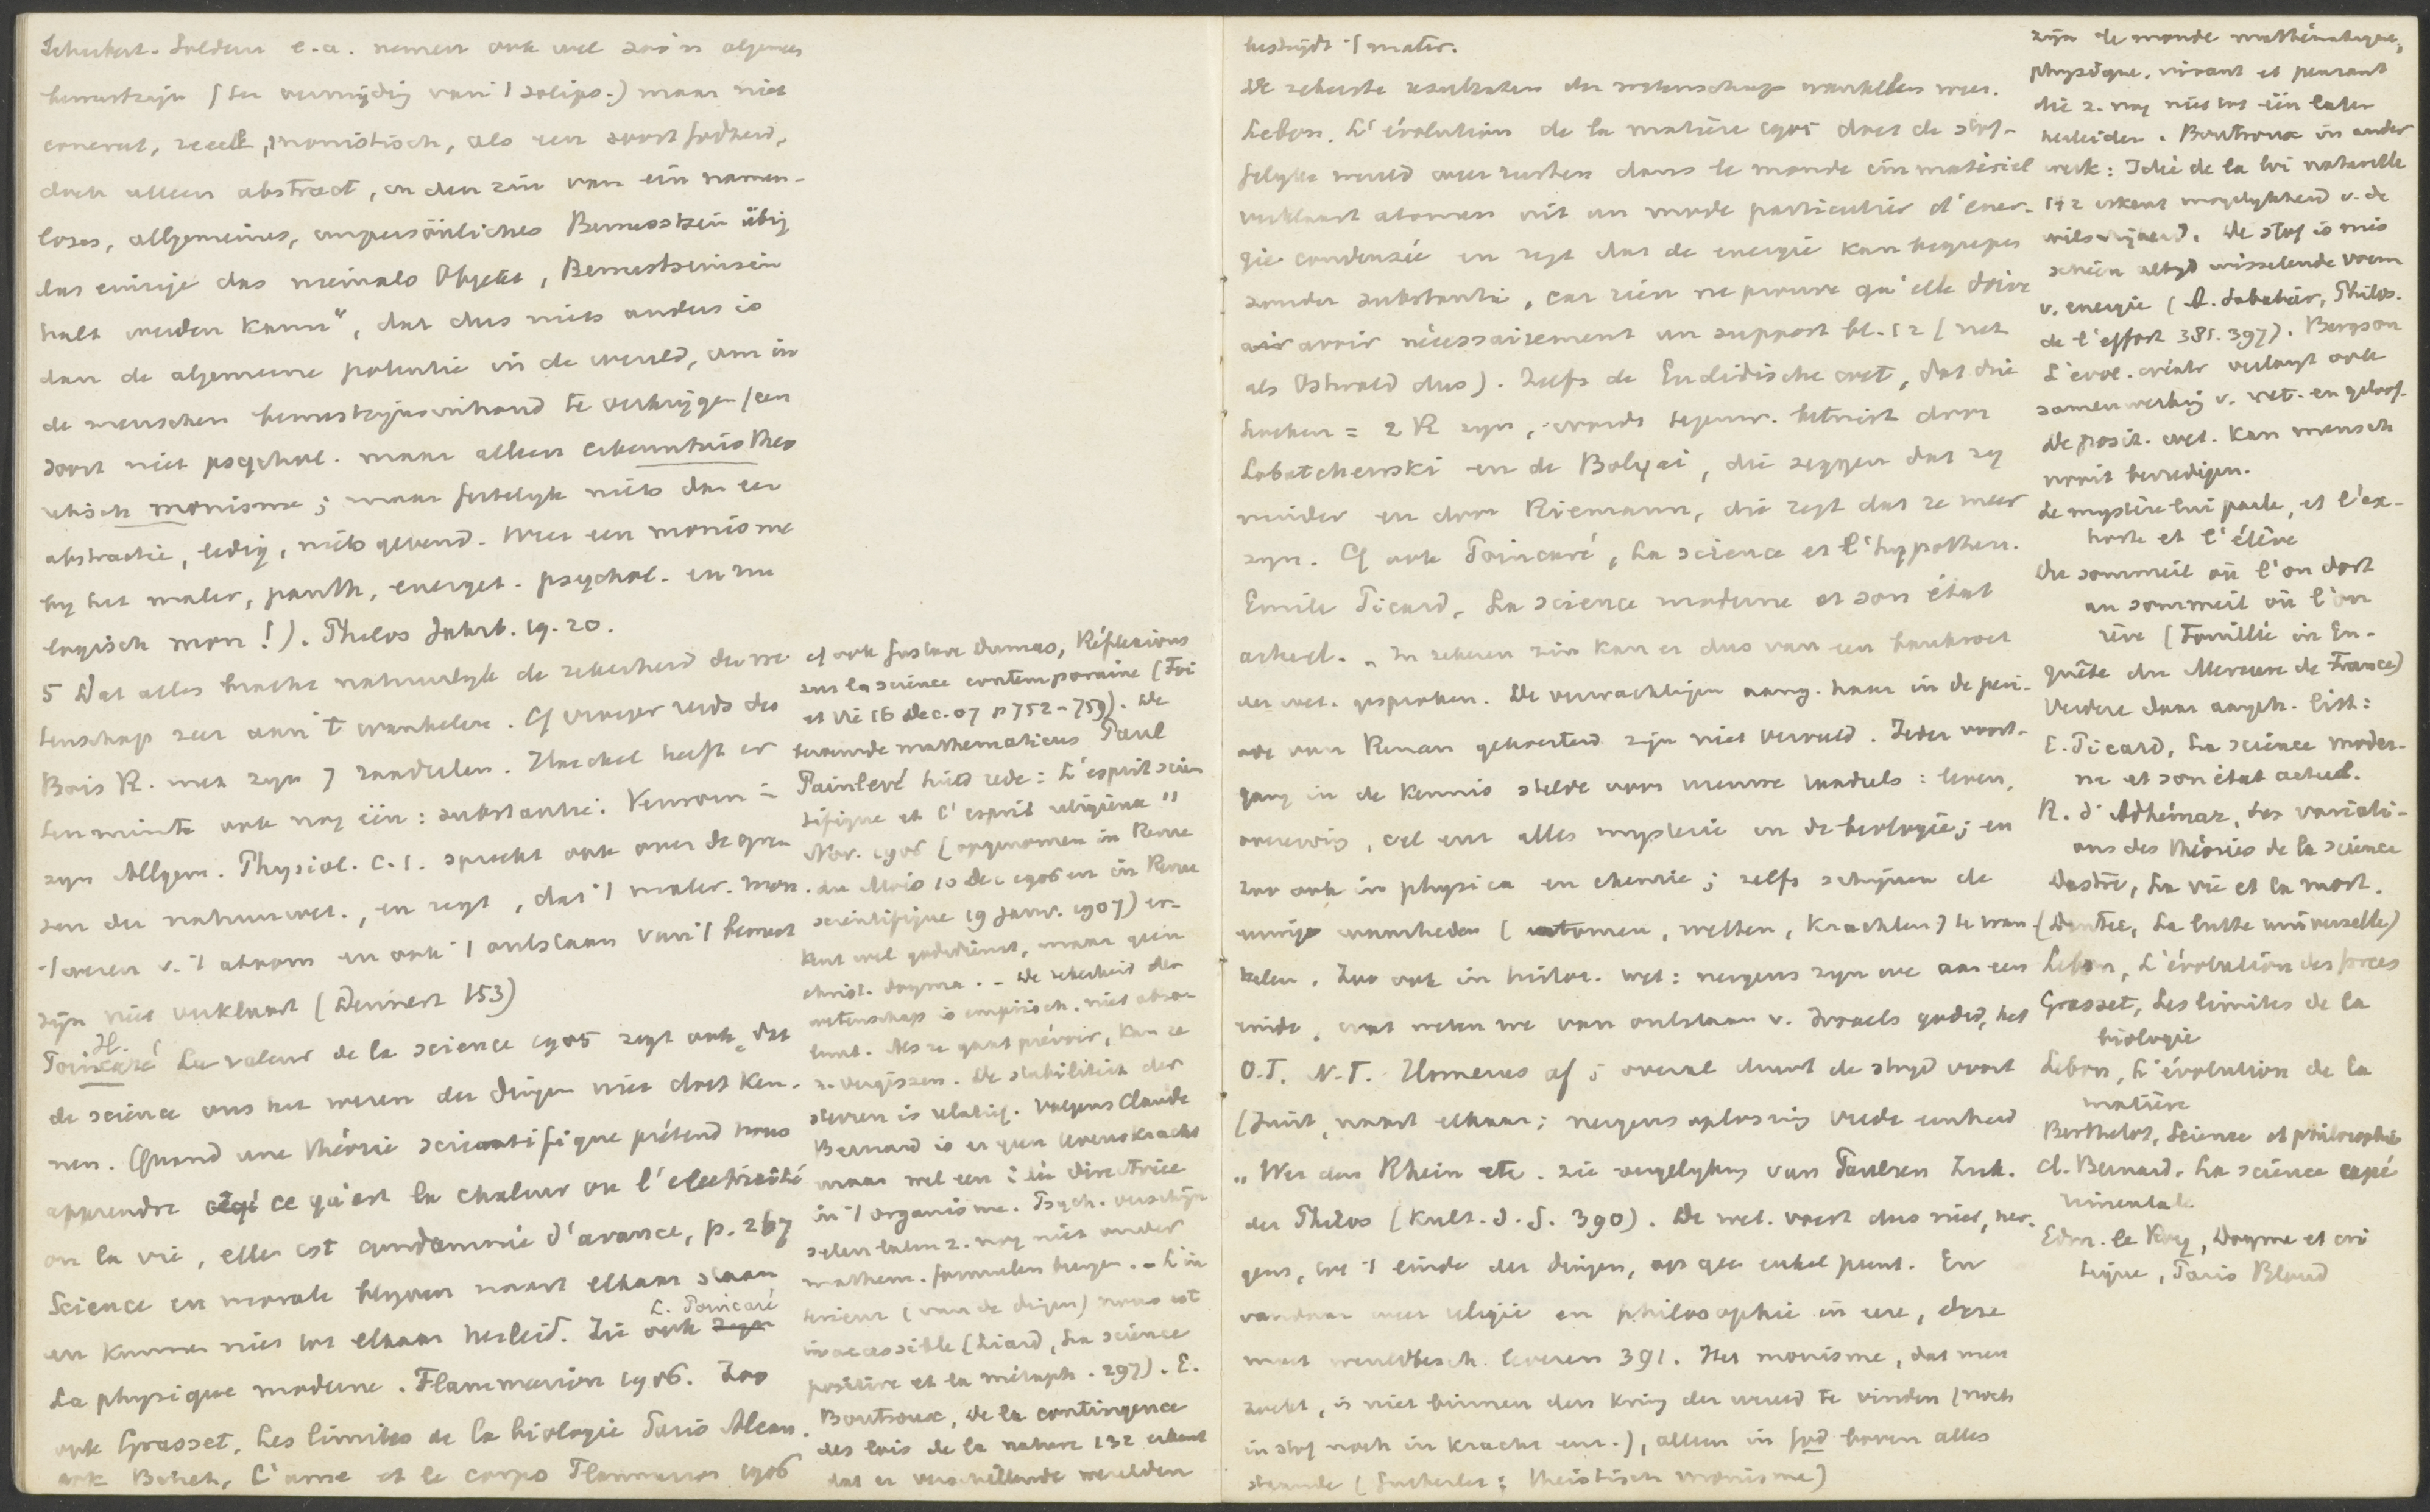 Schubert-Soldern e.a. nemen ook wel zoo'n algemeen
bewustzijn (ter vermijding van 't solips.) maar niet
concreet, reëell, monistisch, als een soort godheid,
doch alleen abstract, in den zin van ein namen-
loses, allgemeines, unpersönliches Bewusstsein übrig
das einzige das niemals Objekt, Bewustseinsin
halt werden kann", dat dus niets anders is
dan de algemeene potentie in de wereld, om in
de menschen bewustzijnsinhoud te verkrijgen (een
soort niet psychol. maar alleen erkenntnistheo
retisch monisme; maar feitelijk niets dan een
abstractie, ledig, niets gevend. Weer een monisme
bij het mater, panth, energet. psychol. en nu
logisch mon!). Philos Jahrb. 19. 20.
5 Dat alles bracht natuurlijk de zekerheid der we
tenschap zeer aan 't wankelen. Cf vroeger reeds du
Bois R. met zijn 7 raadselen. Haeckel heeft er
ten minste ook nog één: substantie. Verworn in
zijn Allgem. Physiol. C. 1. spreekt ook over de gren
zen der natuurwet., en zegt, dat 't mater. mon.
't wezen v. 't atoom en ook 't ontstaan van 't bewust
zijn niet verklaart (Dennert 153)
H.
Poincaré La valeur de la science 1905 zegt ook, dat
de science ons het wezen der dingen niet doet ken-
nen. Quand une théorie scientifique prétend nous
apprendre ce qu'est la chaleur ou l'électricité
ou la vie, elle est condamnée d'avance, p. 267
Science en morale blijven naast elkaar staan
en kunnen niet tot elkaar herleid. Zie ook L. Poincaré
La physique moderne. Flammarion 1906. Zoo
ook Grasset, Les limites de la biologie Paris Alcan.
ook Binet, L'ame et le corps Flammarion 1906
cf ook Gustave Dumas, Réflexions
sur la science contemporaine (Foi
et Vie 16 Dec. 07 p 752-759). De
beroemde mathematicus Paul
Painlevé hield rede: L'esprit scien
tifique et l'esprit religieux"
Nov. 1906 (opgenomen in Revue
du Mois 10 dec 1906 en in Revue
scientifique 19 Janv. 1907) er-
kent wel godsdienst, maar geen
christ. dogma. - De zekerheid der
wetenschap is empirisch, niet abso-
luut. Als ze gaat prévoir, kan ze
z. vergissen. De stabiliteit der
sterren is relatief. Volgens Claude
Bernard is er geen levenskracht
maar wel een idée directrice
in 't organisme. Psych. verschijn
selen laten z. nog niet onder
mathem. formulen brengen. - L'in
térieur (van de dingen) nous est
inaccessible (Liard, La science
positive et la métaph. 297). E.
Boutroux, De la contingence
des lois de la nature 132 erkent
dat er verschillende werelden
bestrijdt 't mater.
De zekerste resultaten der wetenschap wankelen weer.
Lebon. L'évolution de la matière 1905 doet de stof-
felijke wereld weer rusten dans le monde immatériel
verklaart atomen uit un mode particulier d'éner-
gie condensée en zegt dat de energie kan begrepen
zonder substantie, car rien ne prouve qu'elle doive
avoir nécessairement un support bl. 12 (net
als Ostwald dus). Zelfs de Euclidische wet, dat drie
hoeken = 2 R zijn, wordt tegenw. betwist door
Lobatchewski en de Bolyai, die zeggen dat zij
minder en door Riemann, die zegt dat ze meer
zijn. Cf ook Poincaré, La science et l'hypothese.
Emile Picard, La science moderne et son état
actuel. - In zekeren zin kan er dus van een bankroet
der wet. gesproken. De verwachtingen aang. haar in de peri-
ode van Renan gekoesterd zijn niet vervuld. Ieder voort-
gang in de kennis stelde voor nieuwe raadsels: leven,
overerving, cel enz alles mysterie in de biologie; en
zoo ook in physica en chemie; zelfs schijnen de
eenige waarheden (atomen, wetten, krachten) te wan-
kelen. Zoo ook in histor. wet: nergens zijn we aan een
einde, wat weten we van ontstaan v. Israels godsd, het
O.T. N.T. Homerus af; overal duurt de strijd voort
(Juist, naast elkaar; nergens oplossing vrede eenheid
"Wer den Rhein etc. zie vergelyking van Paulsen Zuk.
der Philos (Kult. d. G. 390). De wet. voert dus niet, ner-
gens, tot 't einde der dingen, op geen enkel punt. En
vandaar weer religie en philosophie in eere, deze
moet wereldbesch. leveren 391. Het monisme, dat men
zoekt, is niet binnen den kring der wereld te vinden (noch
in stof noch in kracht enz.), alleen in God boven alles
staande (Gutberlet: theistisch monisme)
zijn le monde mathématique,
physique, vivant et pensant
die z. nog niet tot één laten
herleiden. Boutroux in ander
werk: Idée de la loi naturelle
142 erkent mogelijkheid v. de
wilsvrijheid. De stof is mis
schien altijd wisselende vorm
v. energie (A. Sabatier, Philos.
de l'effort 381. 397). Bergson
L'évol. créatr verlangt ook
samenwerking v. wet. en geloof.
De posit. wet. kan mensch
nooit bevredigen.
Le mystère lui parle, et l'ex-
horte et l'élève
Du sommeil où l'on dort
au sommeil où l'on
rève (Fouillée in En-
quête du Mercure de France)
Verdere daar aangeh. litt:
E. Picard, La science moder-
ne et son état actuel.
R. d'Adhémar, Les variati-
ons des théories de la science
Dastre, La vie et la mort.
(Dantec, La lutte universelle)
Lebon, L'évolution des forces
Grasset, Les limites de la
biologie
Lebon, L'évolution de la
matière
Berthelot, Science et philosophie
Cl. Bernard. La science expé
rimentale
Edm. le Roy, Dogme et cri
tique, Paris Bloud